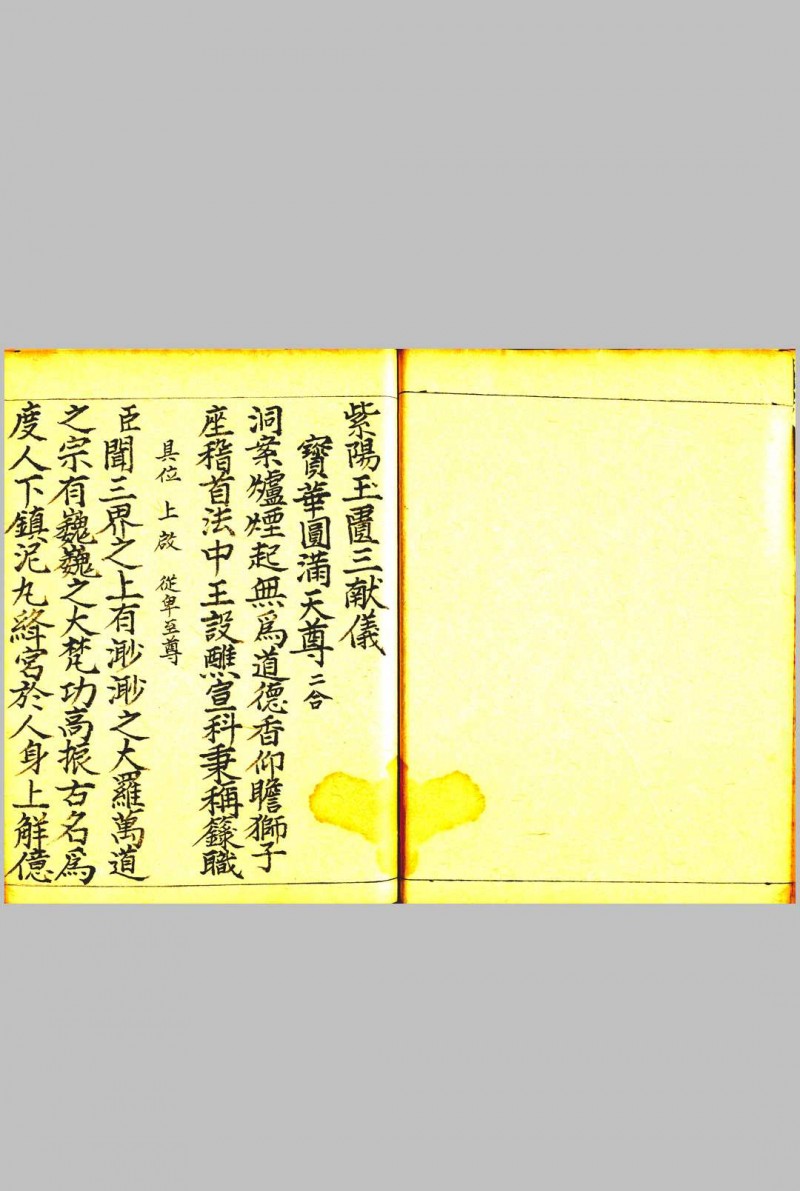 紫陽玉匱三献儀
寳華圓滿天尊二合
洞案爐煙起無爲道德香仰瞻獅子
座稽首法中王設醮宣科秉稱籙職
具位 上啟 從卑至尊
臣聞三界之上有渺渺之大羅萬道
之宗有巍巍之大梵功高振古名爲
度人下鎮泥丸絳宮於人身上解億